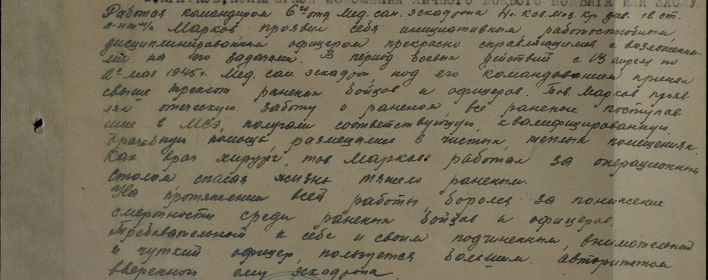 Работая командиром 6го отд. Мед. сан. эскадрона кав. див. гв. ст.
л-нт м/с Марков проявил себя инициативным, работоспособным,
дисциплинированным офицером прекрасно справляющимся с возложенны-
ми на его задачами. В период боевых действий с 13 апреля по
2е мая 1945 г. Мед. сан. эскадрон, под его командованием принял
свыше трехсот раненых бойцов и офицеров. Тов Марков прояв
лял отеческую заботу о раненом, все раненые поступав
шие в МСЭ, получали соответствующую, квалифицированную
врачебную помощь, размещались в чистых, теплых помещениях.
Как врач хирург, тов Марков работал за операционным
столом спасая жизнь тяжело раненым.
На протяжении всей работы, боролся за понижение
смертности среди раненых бойцов и офицеров.
Требовательный к себе и своим подчиненным, внимательный
и чуткий офицер, пользуется большим авторитетом
вверенного ему эскадрона